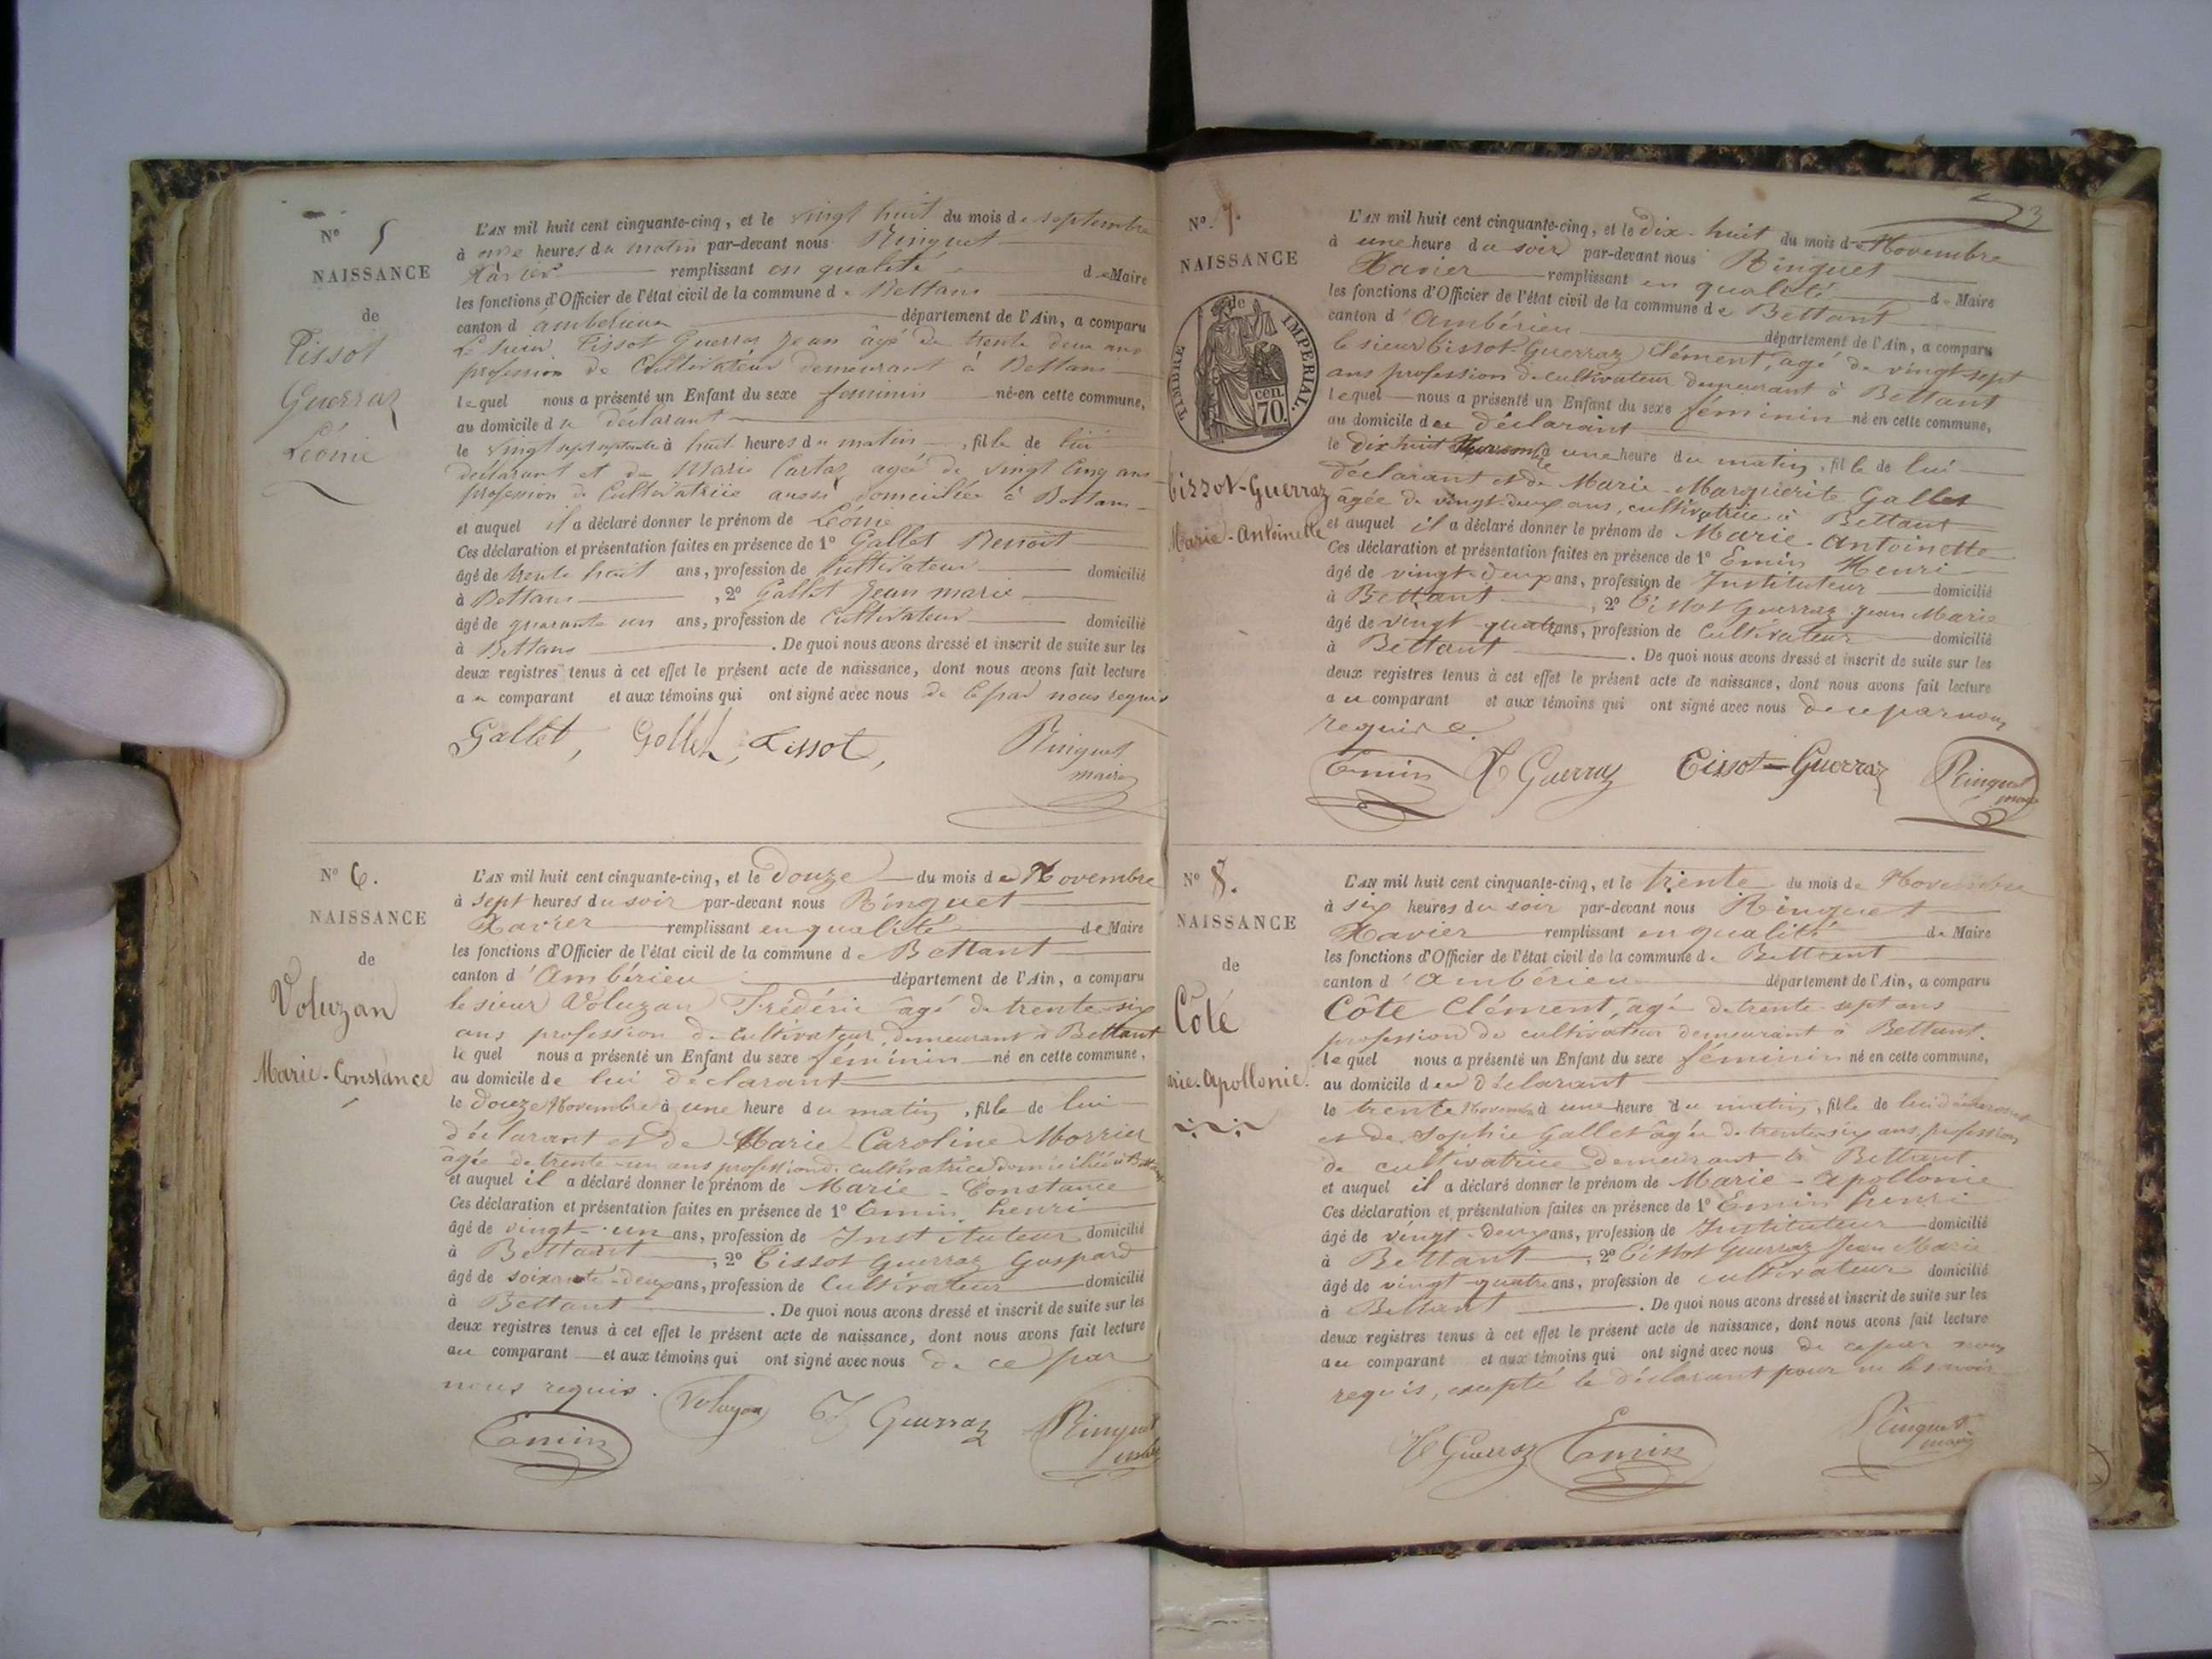 N° 5
NAISSANCE
de
Tissot
Guerraz
Léonie
L'AN mil huit cent cinquante-cinq, et le vingt huit du mois de septembre
à onze heures du matin par-devant nous Ringuet
Xavier remplissant en qualité de Maire
les fonctions d'Officier de l'état civil de la commune de Bettans
canton d'ambérieux département de l'Ain, a comparu
Le sieur Tissot Guerraz Jean âgé de trente deux ans
profession de Cultivateur demeurant à Bettans
lequel nous a présenté un Enfant du sexe feminin né en cette commune,
au domicile du déclarant
le vingt sept septembre à huit heures du matin, fille de lui
déclarant et de Marie Cartaz agée de vingt Cinq ans
profession de Cultivatrice aussi domiciliée à Bettans
et auquel il a déclaré donner le prénom de Léonie
Ces déclaration et présentation faites en présence de 1° Gallet Benoit
âgé de trente huit ans, profession de Cultivateur domicilié
à Bettans, 2° Gallet Jean marie
âgé de quarante un ans, profession de Cultivateur domicilié
à Bettans. De quoi nous avons dressé et inscrit de suite sur les
deux registres tenus à cet effet le présent acte de naissance, dont nous avons fait lecture
au comparant et aux témoins qui ont signé avec nous de ce par nous requis
Gallet, Gallet, Tissot, Ringuet
maire
N° 6.
NAISSANCE
de
Voluzan
Marie-Constance
L'AN mil huit cent cinquante-cinq, et le Douze du mois de Novembre
à sept heures du soir par-devant nous Ringuet
Xavier remplissant en qualité de Maire
les fonctions d'Officier de l'état civil de la commune de Bettant
canton d'Ambérieu département de l'Ain, a comparu
le sieur Voluzan Frédéric âgé de trente-six
ans profession de cultivateur, demeurant à Bettant
lequel nous a présenté un Enfant du sexe féminin né en cette commune,
au domicile de lui déclarant
le douze Novembre à une heure du matin, fille de lui
déclarant et de Marie-Caroline Morrier
âgée de trente-un ans profession de cultivatrice domiciliée à Bettant
et auquel il a déclaré donner le prénom de Marie-Constance
Ces déclaration et présentation faites en présence de 1° Emin henri
âgé de vingt-un ans, profession de Instituteur domicilié
à Bettant, 2° Tissot Guerraz Gaspard
âgé de soixante-deux ans, profession de Cultivateur domicilié
à Bettant. De quoi nous avons dressé et inscrit de suite sur les
deux registres tenus à cet effet le présent acte de naissance, dont nous avons fait lecture
au comparant et aux témoins qui ont signé avec nous de ce par
nous requis. Voluzan Guerraz Ringuet
Emin
N° 7.
NAISSANCE
de
TIMBRE IMPERIAL.
70 cen.
Tissot-Guerraz
Marie-Antoinette
23
L'AN mil huit cent cinquante-cinq, et le dix-huit du mois de Novembre
à une heure du soir par-devant nous Ringuet
Xavier remplissant en qualité de Maire
les fonctions d'Officier de l'état civil de la commune de Bettant
canton d'Ambérieu département de l'Ain, a comparu
le sieur Tissot-Guerraz Clément, âgé de vingt-sept
ans profession de cultivateur demeurant à Bettant
lequel nous a présenté un Enfant du sexe féminin né en cette commune,
au domicile du déclarant
le dix huit Novembre à une heure du matin, fille de lui
déclarant et de Marie-Marguerite Gallet
âgée de vingt-deux ans, cultivatrice à Bettant
et auquel il a déclaré donner le prénom de Marie-Antoinette
Ces déclaration et présentation faites en présence de 1° Emin Henri
âgé de vingt-deux ans, profession de Instituteur domicilié
à Bettant, 2° Tissot Guerraz Jean Marie
âgé de vingt-quatre ans, profession de Cultivateur domicilié
à Bettant. De quoi nous avons dressé et inscrit de suite sur les
deux registres tenus à cet effet le présent acte de naissance, dont nous avons fait lecture
au comparant et aux témoins qui ont signé avec nous de ce par nous
requis
Emin Guerraz Tissot-Guerraz Ringuet
maire
N° 8.
NAISSANCE
de
Côte
arie-Apollonie.
L'AN mil huit cent cinquante-cinq, et le trente du mois de Novembre
à six heures du soir par-devant nous Ringuet
Xavier remplissant en qualité de Maire
les fonctions d'Officier de l'état civil de la commune de Bettant
canton d'Ambérieu département de l'Ain, a comparu
Côte Clément, âgé de trente-sept ans
profession de cultivateur demeurant à Bettant.
lequel nous a présenté un Enfant du sexe féminin né en cette commune,
au domicile du déclarant
le trente Novembre à une heure du matin, fille de lui déclarant
et de Sophie Gallet âgée de trente-six ans, profession
de cultivatrice demeurant à Bettant.
et auquel il a déclaré donner le prénom de Marie-Apollonie
Ces déclaration et présentation faites en présence de 1° Emin henri
âgé de vingt-deux ans, profession de Instituteur domicilié
à Bettant, 2° Tissot Guerraz Jean Marie
âgé de vingt-quatre ans, profession de cultivateur domicilié
à Bettant. De quoi nous avons dressé et inscrit de suite sur les
deux registres tenus à cet effet le présent acte de naissance, dont nous avons fait lecture
au comparant et aux témoins qui ont signé avec nous de ce par nous
requis, excepté le déclarant pour ne le savoir
Guerraz Emin Ringuet
maire